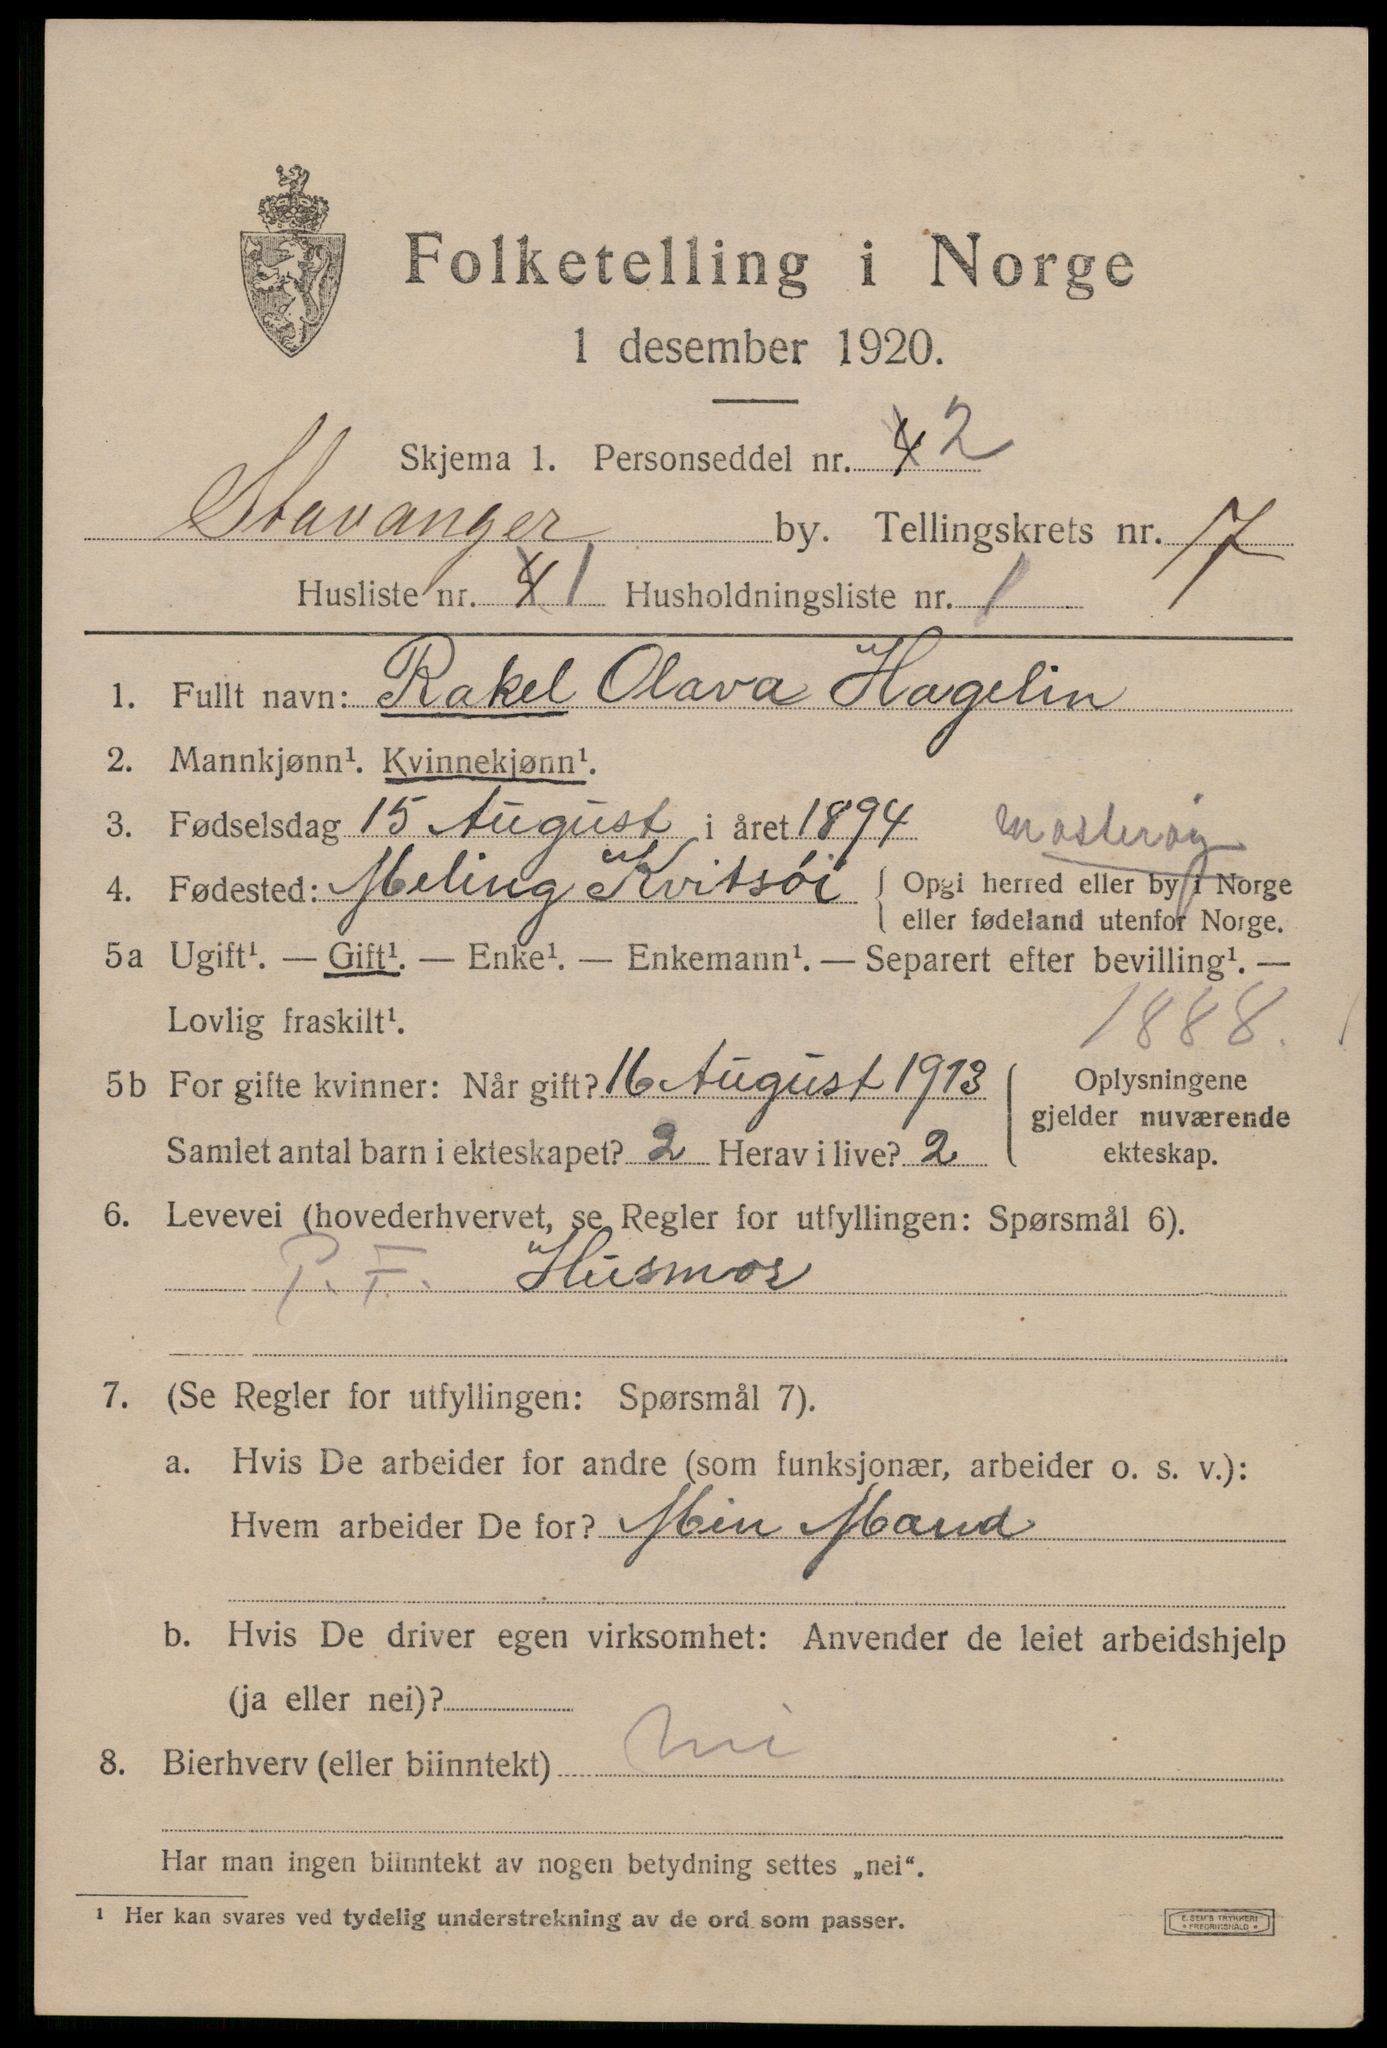 Folketelling i Norge
1 desember 1920.
Skjema 1. Personseddel nr. 4 2
Stavanger by. Tellingskrets nr. 17
Husliste nr. 4 1 Husholdningsliste nr. 1
1. Fullt navn: Rakel Olava Hagelin
2. Mannkjønn¹. Kvinnekjønn¹.
3. Fødselsdag 15 August i året 1894
Mosterøy
4. Fødested: Meling Kvitsöi { Opgi herred eller by i Norge
eller fødeland utenfor Norge.
5a Ugift¹. — Gift¹. — Enke¹. — Enkemann¹. — Separert efter bevilling¹. —
Lovlig fraskilt¹.
1888.
5b For gifte kvinner: Når gift? 16 August 1913 ( Oplysningene
gjelder nuværende
Samlet antal barn i ekteskapet? 2 Herav i live? 2 ekteskap.
6. Levevei (hovederhvervet, se Regler for utfyllingen: Spørsmål 6).
P. F. Husmor
7. (Se Regler for utfyllingen: Spørsmål 7).
a. Hvis De arbeider for andre (som funksjonær, arbeider o. s. v.):
Hvem arbeider De for? Min Mand
b. Hvis De driver egen virksomhet: Anvender de leiet arbeidshjelp
(ja eller nei)?
8. Bierhverv (eller biinntekt) nei
Har man ingen biinntekt av nogen betydning settes „nei“.
¹ Her kan svares ved tydelig understrekning av de ord som passer.
E. SEM'S TRYKKERI
* FREDRIKSHALD *